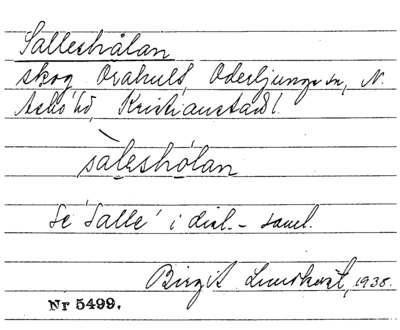 Salleshålan
skog, Örahult, Oderljunga sn, N.
Åsbo hd, Kristianstads l.
salesholan
Se 'Salle' i dial.- saml.
Birgit Lundkvist, 1935.
Nr 5499.